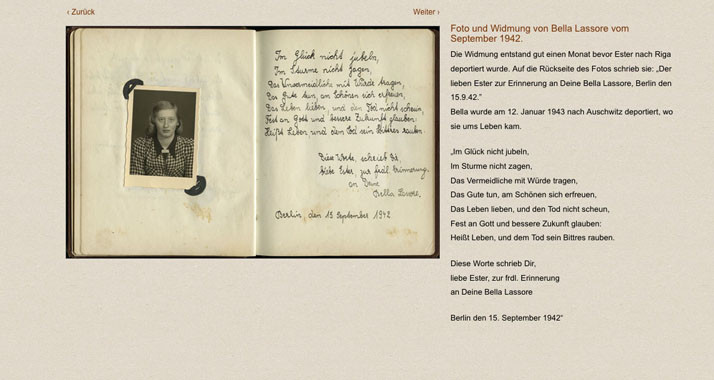 ‹ Zurück
Weiter ›
Im Glück nicht jubeln,
Im Sturme nicht zagen,
Das Unvermeidliche mit Würde tragen,
Das Gute tun, am Schönen sich erfreuen,
Das Leben lieben, und den Tod nicht scheun,
Fest an Gott und bessere Zukunft glauben:
Heißt Leben und dem Tod sein Bittres rauben.
Diese Worte, schrieb Dir,
liebe Ester, zur frdl. Erinnerung
an Deine
Bella Lassore,
Berlin, den 15 September 1942
Foto und Widmung von Bella Lassore vom
September 1942.
Die Widmung entstand gut einen Monat bevor Ester nach Riga
deportiert wurde. Auf die Rückseite des Fotos schrieb sie: „Der
lieben Ester zur Erinnerung an Deine Bella Lassore, Berlin den
15.9.42.”
Bella wurde am 12. Januar 1943 nach Auschwitz deportiert, wo
sie ums Leben kam.
„Im Glück nicht jubeln,
Im Sturme nicht zagen,
Das Vermeidliche mit Würde tragen,
Das Gute tun, am Schönen sich erfreuen,
Das Leben lieben, und den Tod nicht scheun,
Fest an Gott und bessere Zukunft glauben:
Heißt Leben, und dem Tod sein Bittres rauben.
Diese Worte schrieb Dir,
liebe Ester, zur frdl. Erinnerung
an Deine Bella Lassore
Berlin den 15. September 1942”